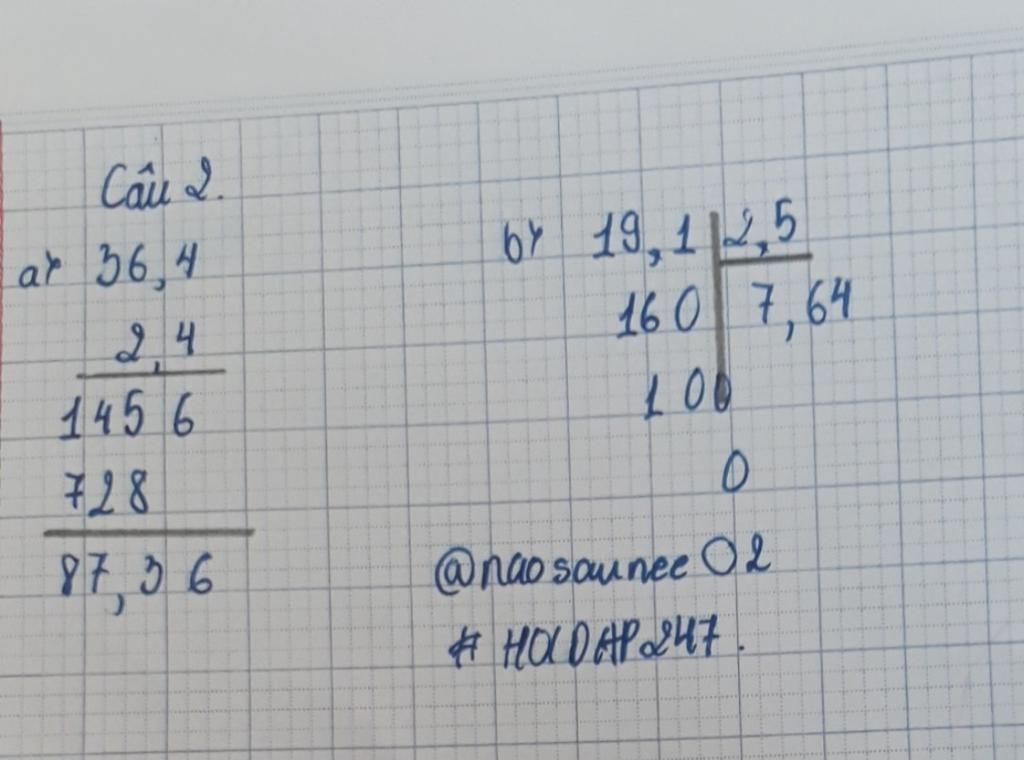 Câu 2.
a) 36,4
2,4
1456
728
87,36
b) 19,1 2,5
160 7,64
100
0
@naosaunee02
# HOIDAP247.